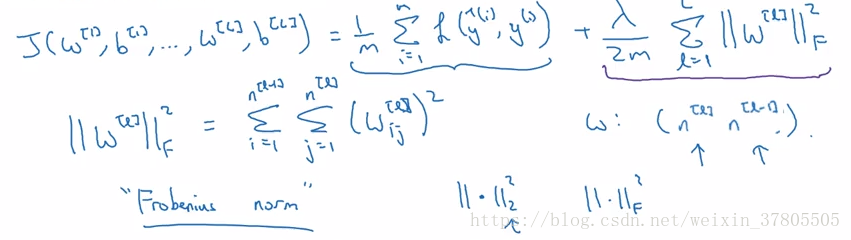 J(ω^[1], b^[1], ..., ω^[L], b^[L]) = 1/m ∑_{i=1}^{n} ℒ(ŷ^(i), y^(i)) + λ/2m ∑_{l=1}^{L} ||ω^[l]||²_F
||ω^[l]||²_F = ∑_{i=1}^{n^[l-1]} ∑_{j=1}^{n^[l]} (ω_{ij}^[l])²    ω: (n^[l] n^[l-1]).
↑ ↑
"Frobenius norm"    ||·||²_2    ||·||²_F
↑
https://blog.csdn.net/weixin_37805505